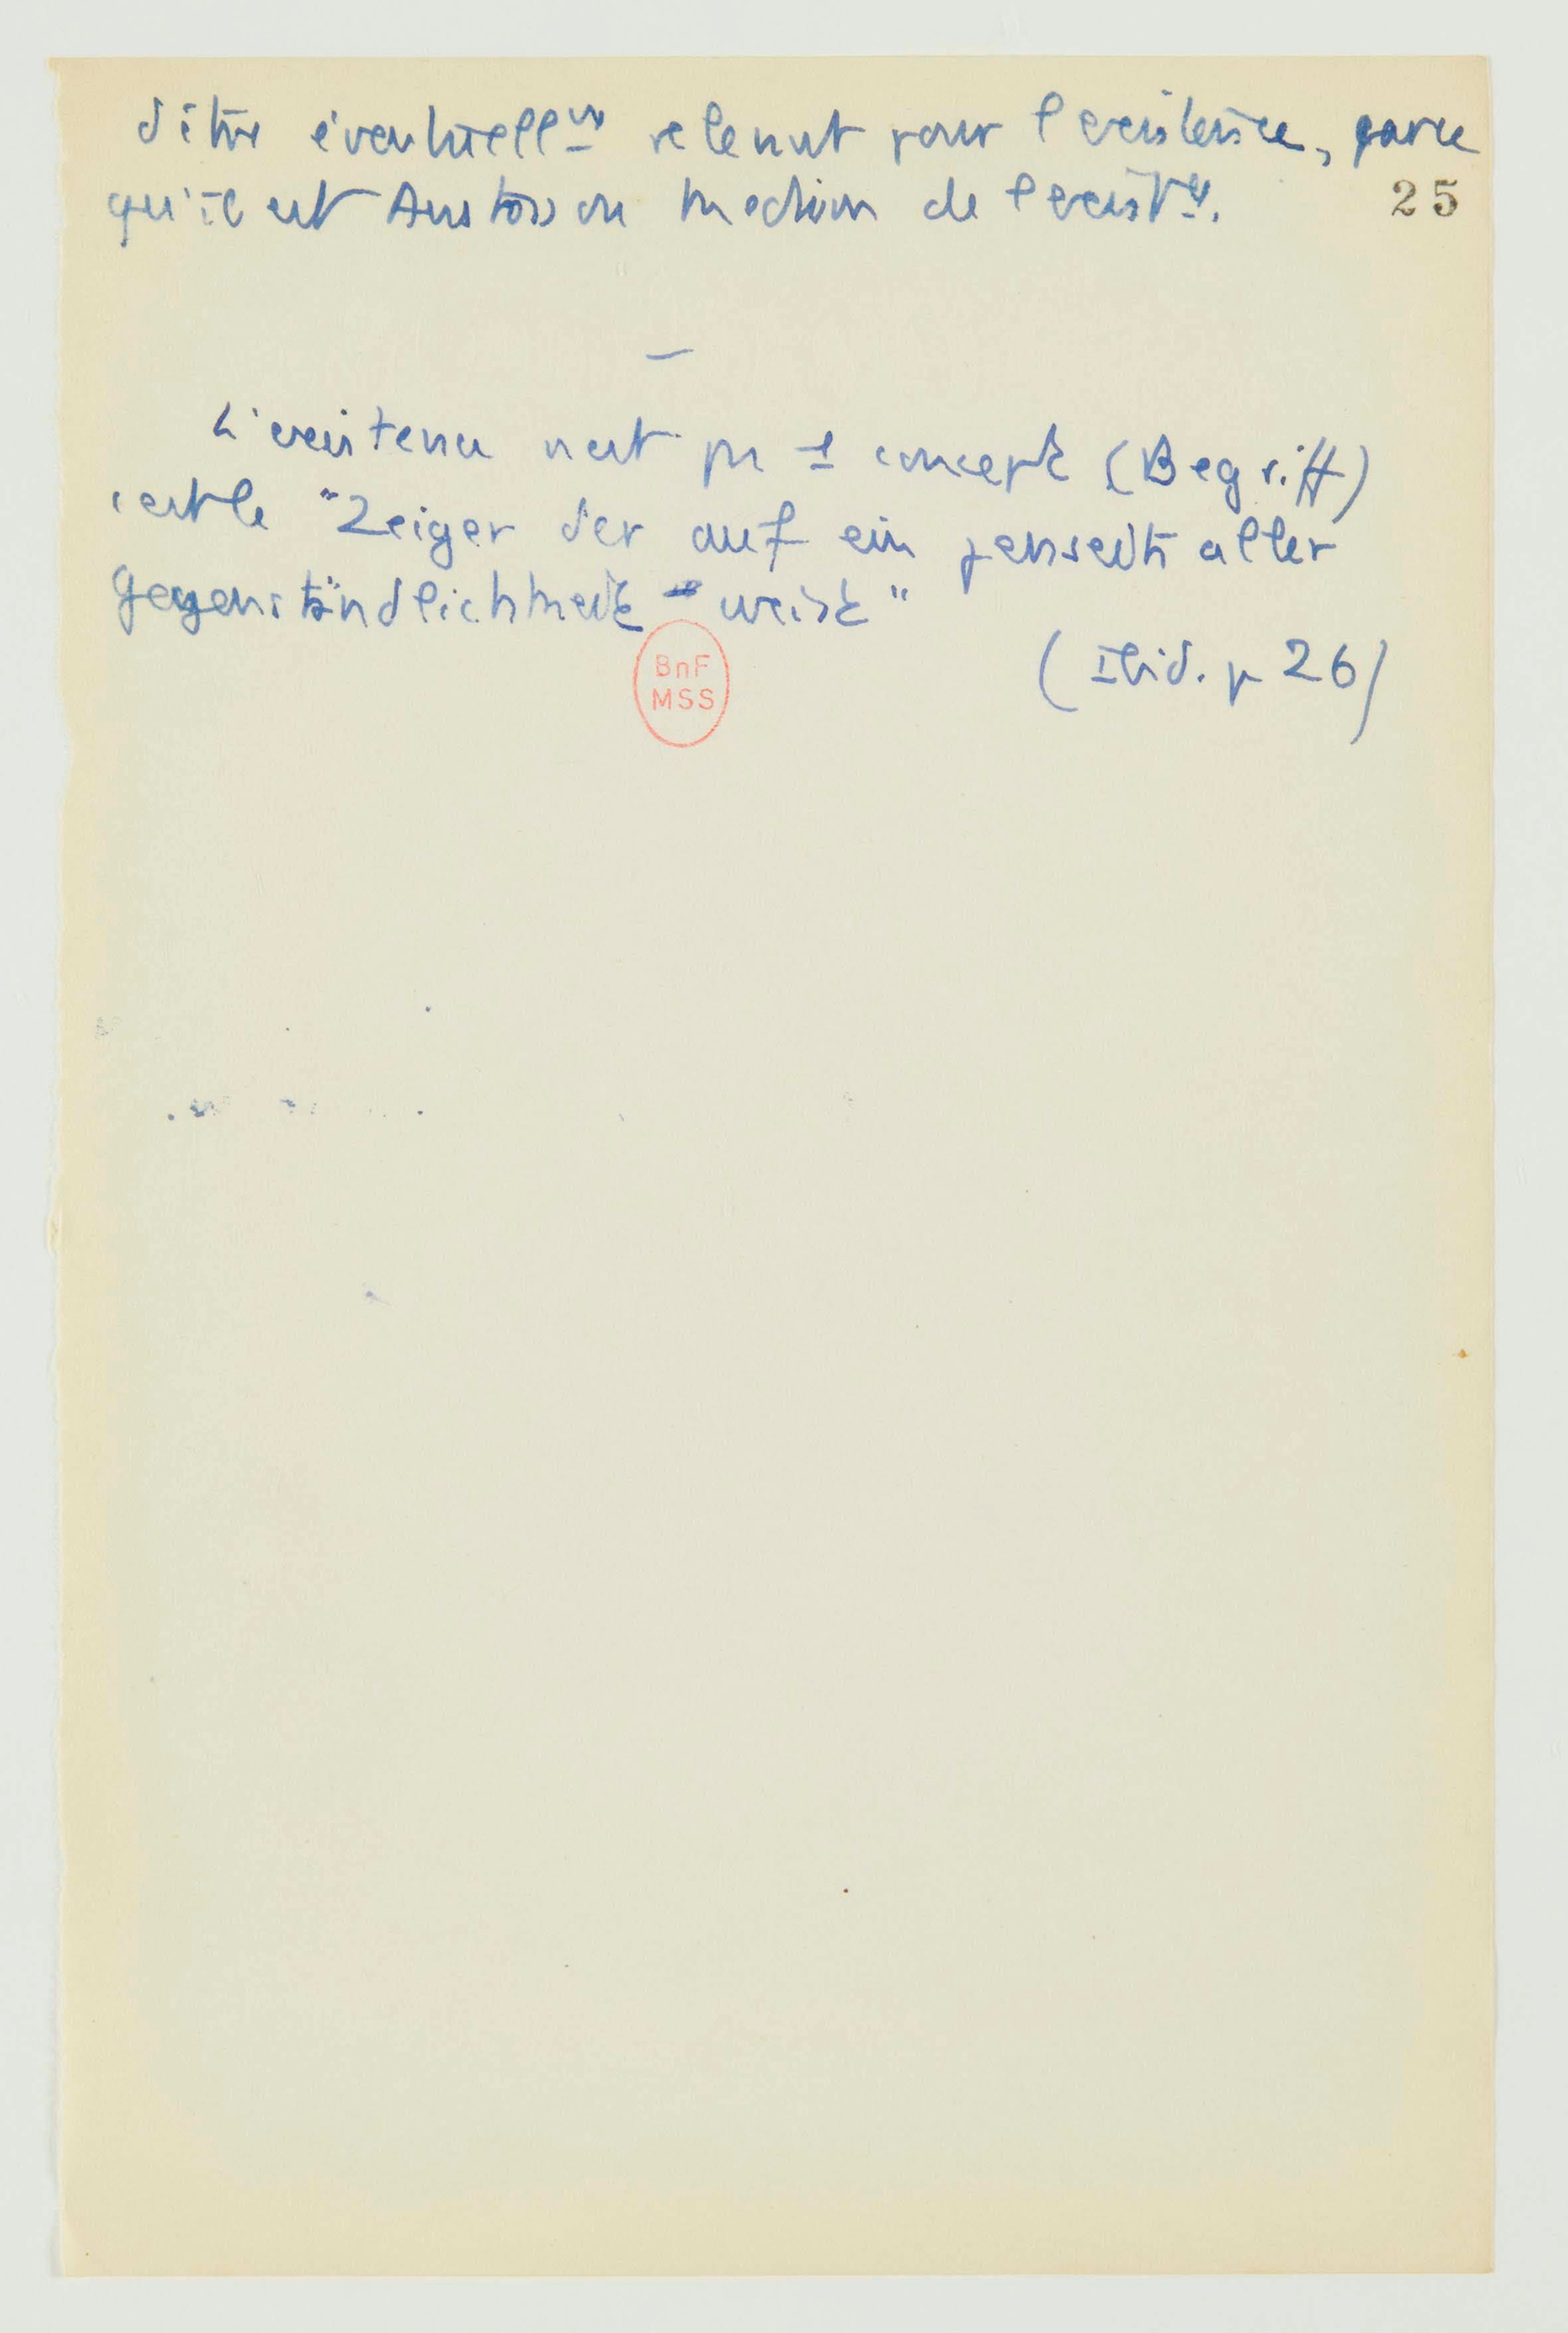 d'être éventuellᵗ relevant pour l'existence, parce
qu'il est Anstoss ou Medium de l'existᶜᵉ.
25
L'existence n'est pas 1 concept (Begriff)
c'est le "Zeiger der auf ein jenseits aller
Gegenständlichkeit weist"
(Ibid. p 26)
BnF
MSS